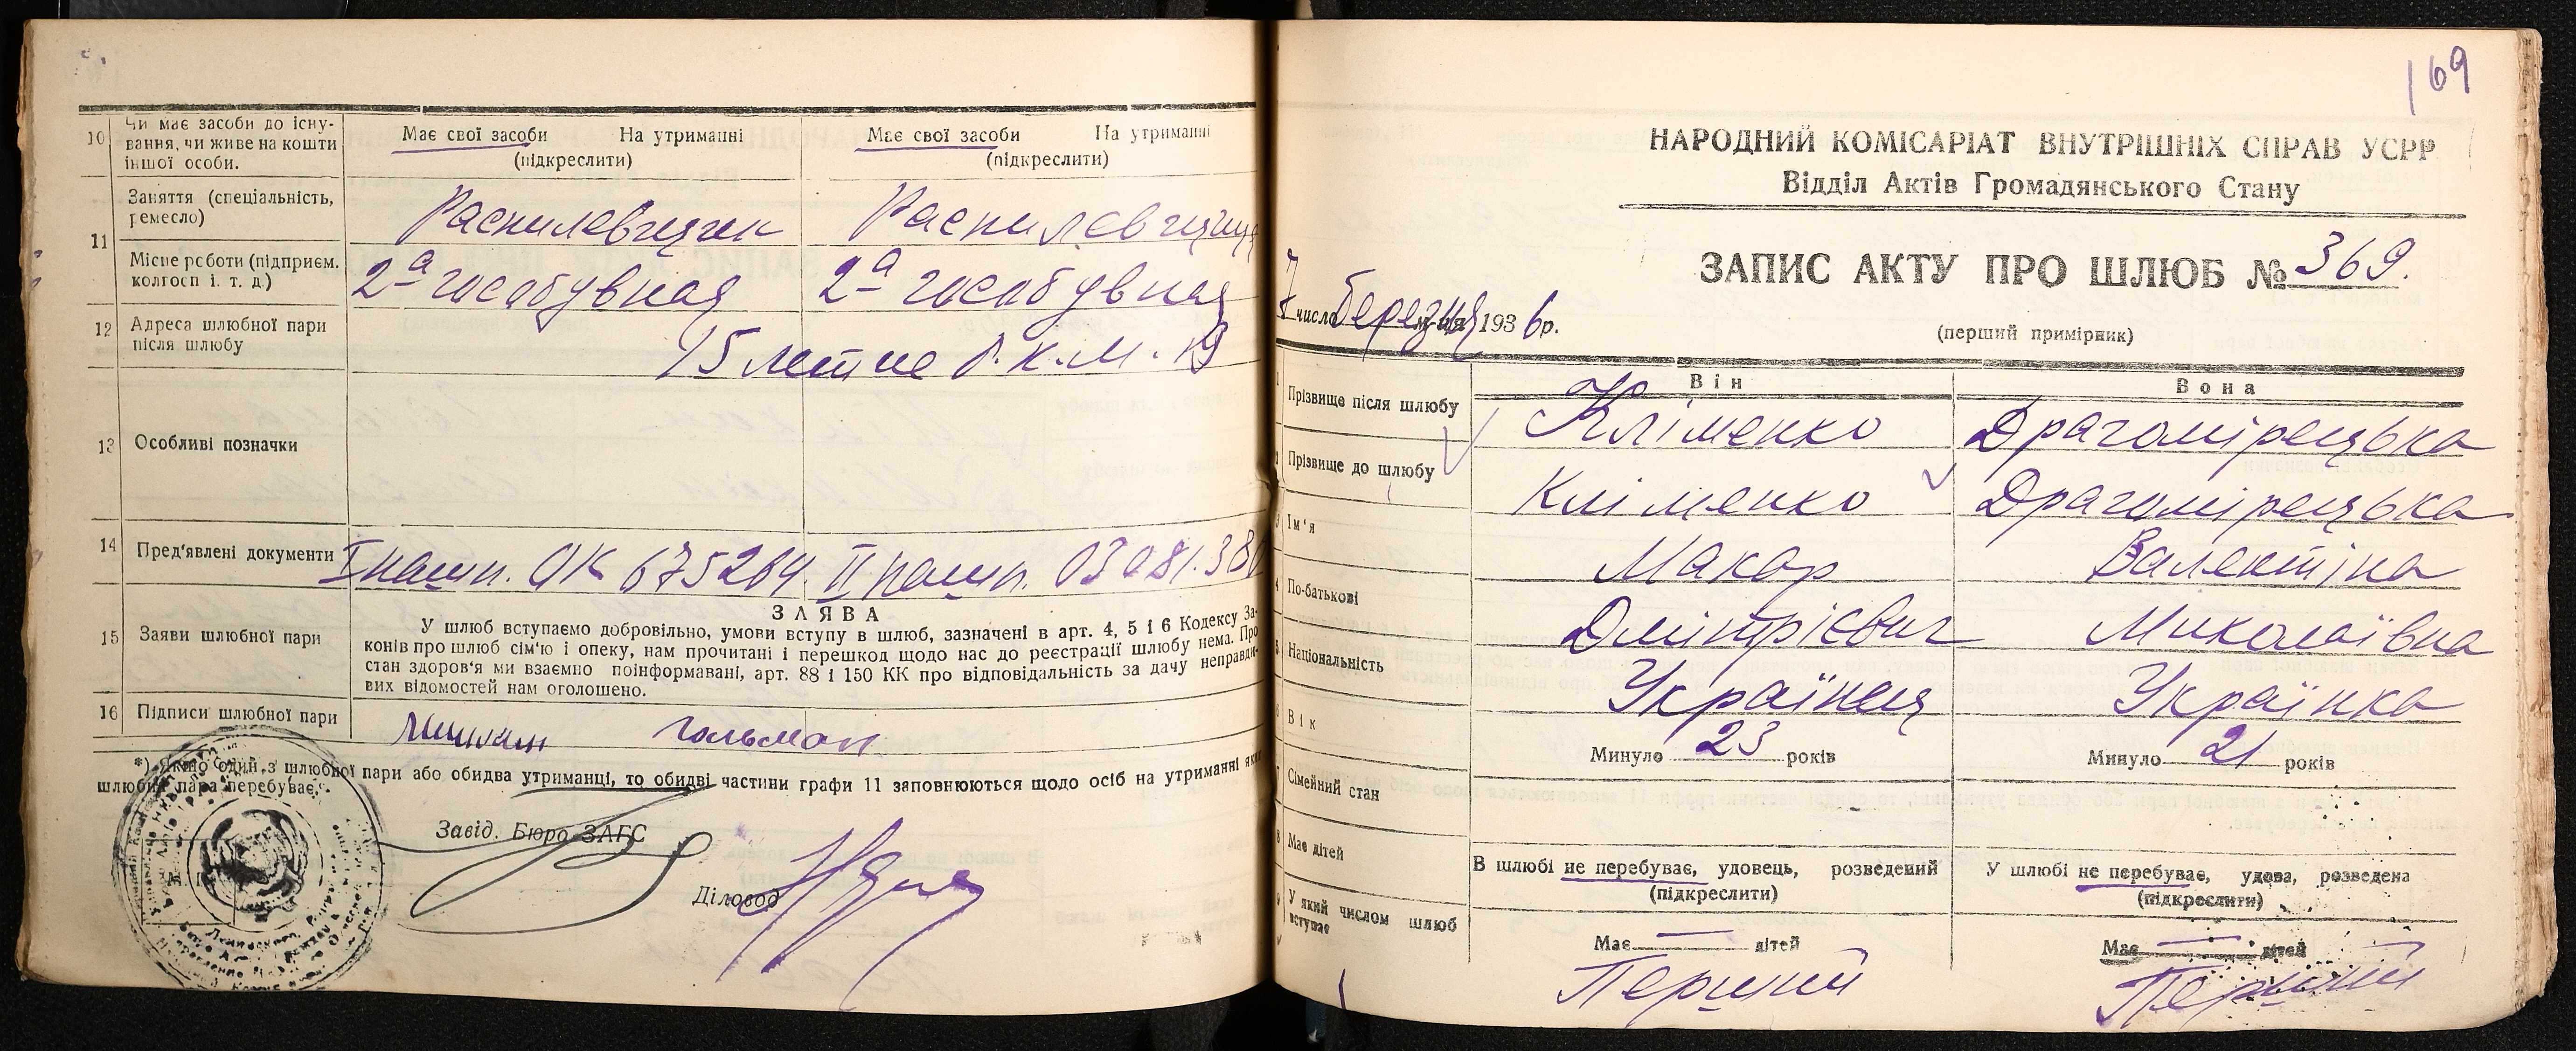 10 Чи має засоби до існу-
вання, чи живе на кошти
іншої особи.
Має свої засоби На утриманні
(підкреслити)
Має свої засоби На утриманні
(підкреслити)
11 Заняття (спеціальність,
ремесло)
Распилевщик
Распилевщиця
Місце роботи (підприєм.
колгосп і. т. д.)
2а гособувная
2а гособувная
12 Адреса шлюбної пари
після шлюбу
15 летие л.к.м. 19
13 Особливі позначки
14 Пред'явлені документи
I пашп. ОК 675264. II пашп.
15 Заяви шлюбної пари
ЗАЯВА
У шлюб вступаємо добровільно, умови вступу в шлюб, зазначені в арт. 4, 5 і 6 Кодексу За-
конів про шлюб сім'ю і опеку, нам прочитані і перешкод щодо нас до реєстрації шлюбу нема. Про
стан здоров'я ми взаємно поінформавані, арт. 88 і 150 КК про відповідальність за дачу неправди-
вих відомостей нам оголошено.
16 Підписи шлюбної пари
Гольман
*) Якщо один з шлюбної пари або обидва утриманці, то обидві частини графи 11 заповнюються щодо осіб на утриманні яких
шлюбна пара перебуває.
Завід. Бюро ЗАГС
Діловод
169
НАРОДНИЙ КОМІСАРІАТ ВНУТРІШНІХ СПРАВ УСРР
Відділ Актів Громадянського Стану
ЗАПИС АКТУ ПРО ШЛЮБ № 369.
7 число березня м-ця 1936 р.
(перший примірник)
Він
Вона
1 Прізвище після шлюбу
Кліменко
Драгомірецька
2 Прізвище до шлюбу
Кліменко
Драгомірецька
3 Ім'я
Макар
Валентіна
4 По-батькові
Дмітрієвич
Миколаївна
5 Національність
Українец
Українка
6 Вік
Минуло 23 років
Минуло 21 років
7 Сімейний стан
В шлюбі не перебуває, удовець, розведений
(підкреслити)
У шлюбі не перебуває, удова, розведена
(підкреслити)
8 Має дітей
Має — дітей
Має — дітей
9 У який числом шлюб
вступає
Перший
Перший